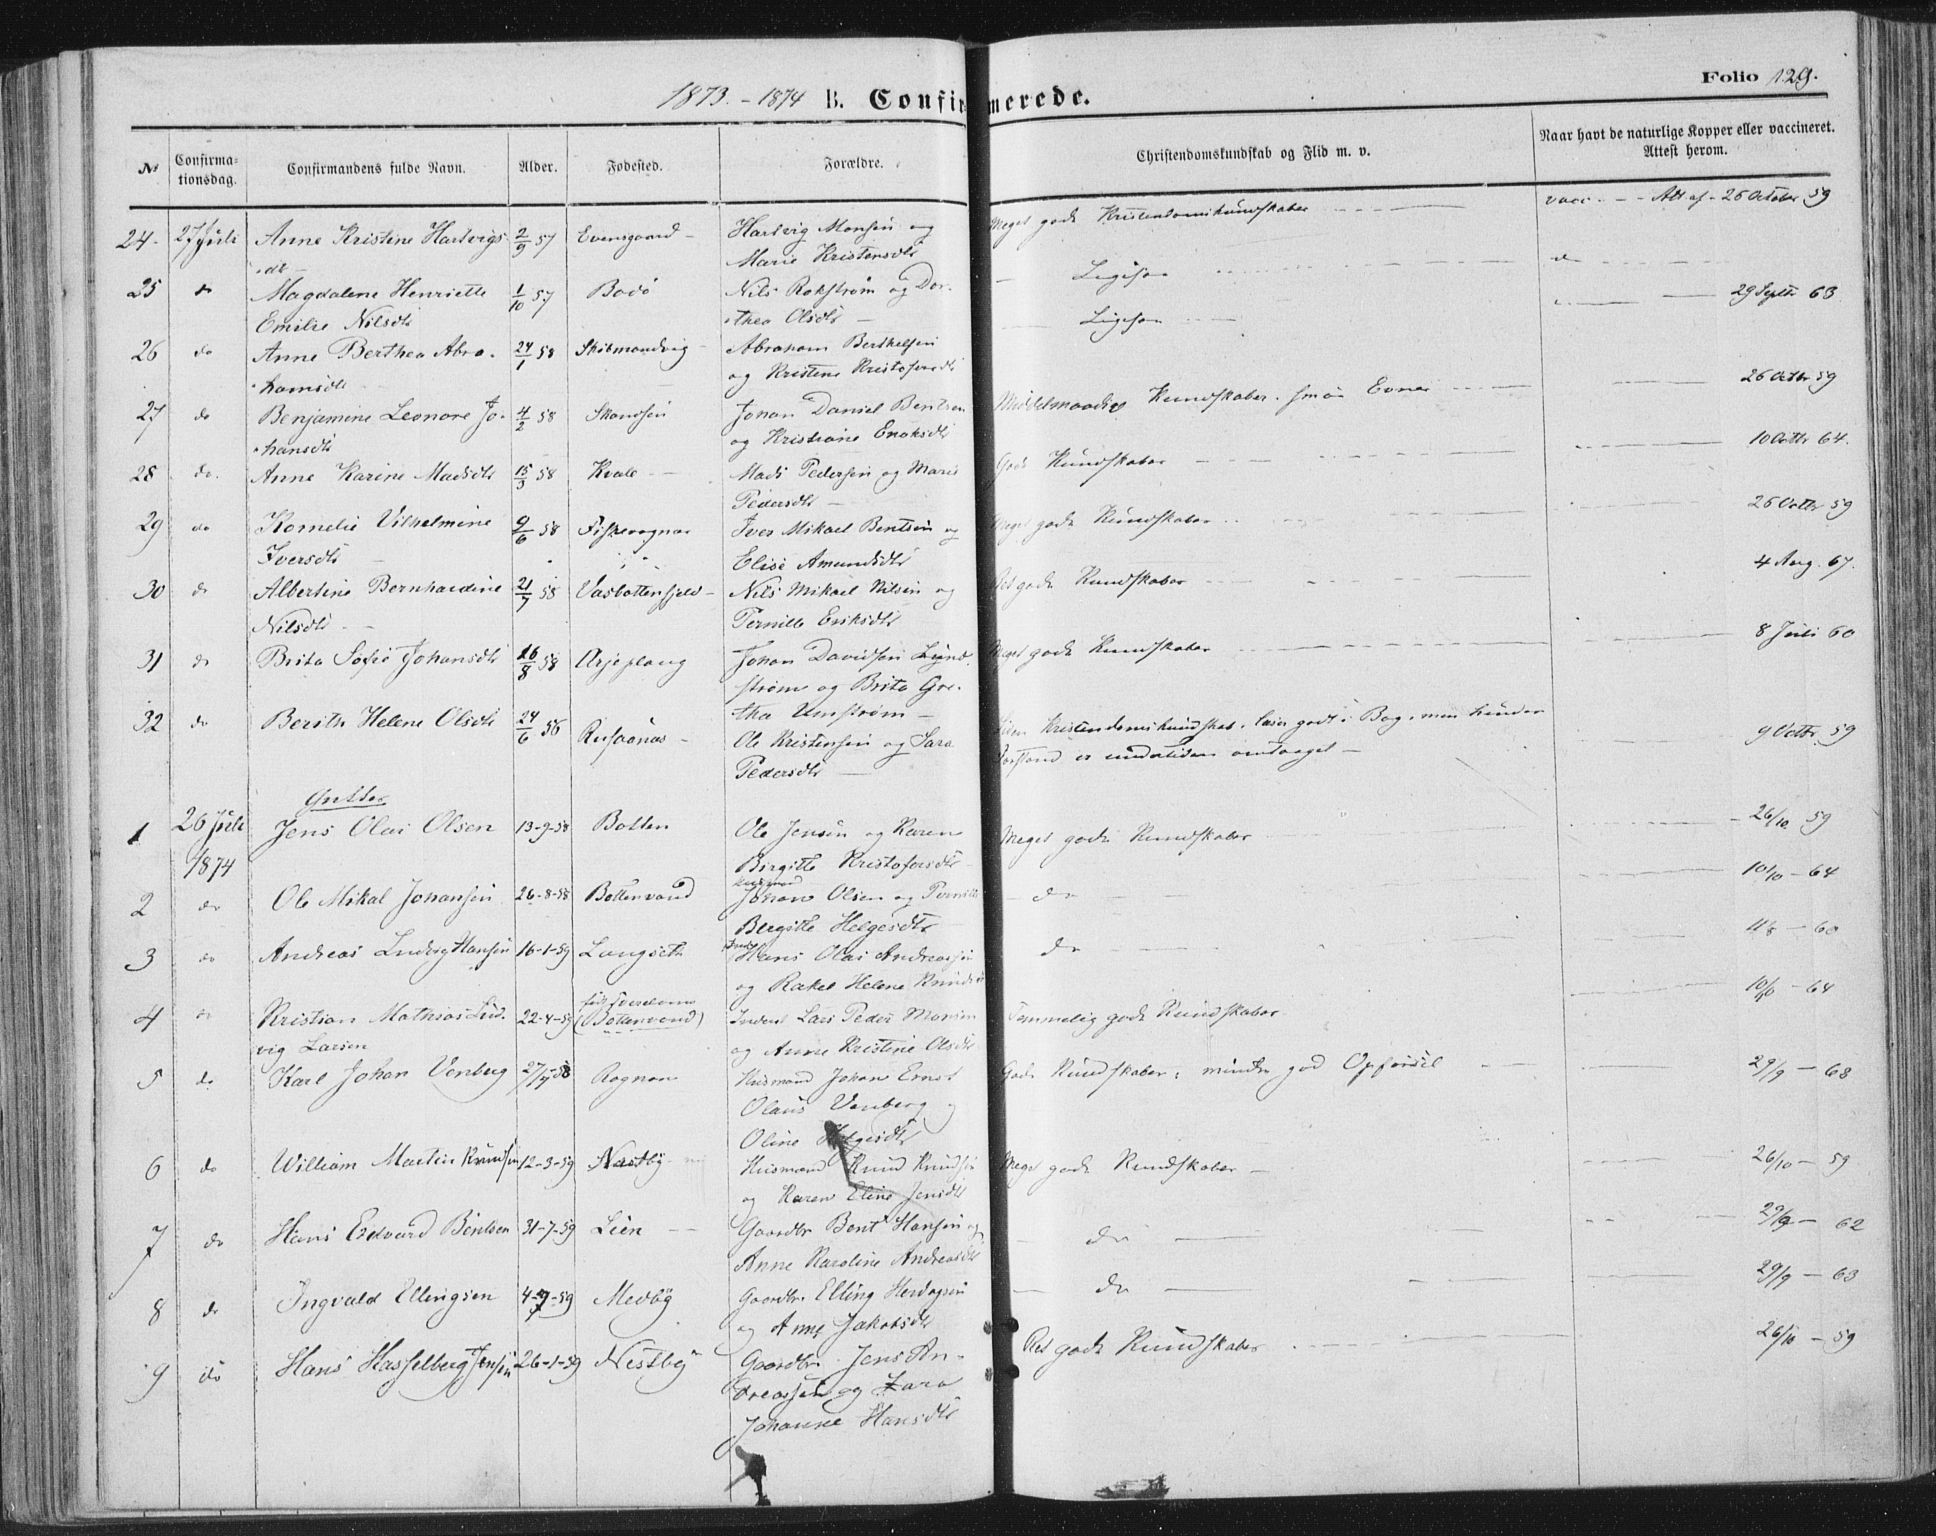 Folio 129.
1873. - 1874 B. Confirmerede.
No Confirmationsdag. Confirmandens fulde Navn. Alder. Fødested. Forældre. Christendomskundskab og Flid m. v. Naar havt de naturlige Kopper eller vaccineret. Attest herom.
24. 27 Juli Anne Kristine Hartvigs 2/9 57 Evensgaard Hartvig Monsen og Meget gode Kristendomskundskaber vacc. Att af 26 October 59
dt Marie Kristensdtr
25 do Magdalene Henriette 1/10 57 Bodö Nils Rokström og Dor- Ligesaa do
Emilie Nilsdtr thea Olsdtr 29 Septbr 63
26 do Anne Berthea Abra- 24/1 58 Abraham Berthelsen Ligesaa
hamsdtr og Kristine Kristofersdtr 26 Octbr 59
27 do Benjamine Leonore Jo- 4/2 58 Skansen Johan Daniel Bentsen Middelmaadige Kundskaber. smaa Evner
hansdtr og Kristiane Enoksdtr 10 Octbr 64.
28 do. Anne Karine Madsdtr 15/3 58 Kvale Mads Pedersen og Marie Gode Kundskaber
Pedersdtr 26 Octbr 59
29 do Kornelie Vilhelmine 9/6 58 Fiskevognar Iver Mikael Bentsen og Meget gode Kundskaber
Iversdtr Elise Amundsdtr 4 Aug. 67.
30 do Albertine Bernhardine 21/7 58 Vasbottenfjeld Nils Mikael Nilsen og Ret gode Kundskaber
Nilsdtr Pernille Eriksdtr 8 Juli 60
31 do Brita Sofie Johansdtr 16/8 58 Arjeplaug Johan Davidsen Lund- Meget gode Kundskaber
strøm og Brita Gre-
32 do Berith Helene Olsdtr 24/6 56 Rusaanas tha Umstrøm Liden Kristendomskundskab, læser godt i Bog, men hendes 9 Octbr. 59
Ole Kristensen og Sara Forstand er undertiden omtaaget
Pedersdtr
Gutter
1 26 Juli Jens Olai Olsen 13-9-58 Botten Ole Jensen og Karen Meget gode Kundskaber 26/10 59
1874 Birgitte Kristofersdtr
2 do Ole Mikal Johansen 26-8-58 Bottenvand Johan Olsen og Pernille do 10/10 - 64
Bergitte Helgesdtr
3 do Andreas Ludvig Hansen 16-1-59 Langseth Hans Olai Andreassen do 11/8 - 60
og Rakel Helene Knudsdtr
4 do Kristian Mathias Lud- 22-4-59 (Bottenvand) Inderst Lars Peder Monsen Temmelig gode Kundskaber 10/10 - 64
vig Larsen og Anne Kristine Olsdtr
5 do Karl Johan Venberg 27/7 58 Rognan Husmand Johan Ernst Gode Kundskaber; mindre god Opførsel 29/9 - 68
Olaus Venberg og
Oline Helgesdtr
6 do William Martin Knudsen 12-3-59 Nestby Husmand Knud Knudsen Meget gode Kundskaber 26/10 - 59
og Karen Eline Jensdtr
7 do Hans Edvard Bentsen 31-7-59 Lien Gaardbr Bent Hansen og do 29/9 - 62
Anne Karoline Andreasdtr
8 do Ingvald Ellingsen 4-7-59 Medby Gaardbr. Elling Herdagsen do 29/9 - 63
og Anne Jakobsdtr
9 do Hans Hasselberg Jensen 26-1-59 Nestby Gaardbr. Jens An- Ret gode Kundskaber 26/10 - 59
dreassen og Zara
Johanne Hansdtr